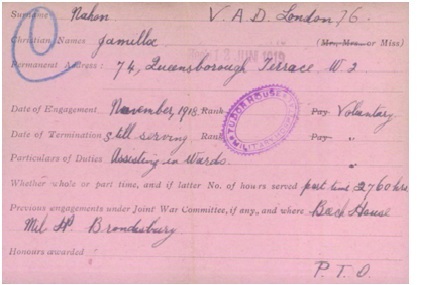 Surname Nahon V.A.D. London 76.
Christian Names Jamille (Mr., Mrs. or Miss)
Permanent Address: 74, Queensborough Terrace, W.2
Date of Engagement November, 1918 Rank Pay Voluntary
Date of Termination still serving Rank Pay "
Particulars of Duties Assisting in Wards. "
Whether whole or part time, and if latter No. of hours served part time 2760 hrs
Previous engagements under Joint War Committee, if any, and where Beech House
Mil. Hp. Brondesbury
Honours awarded
P.T.O.
TUDOR HOUSE
MILITARY